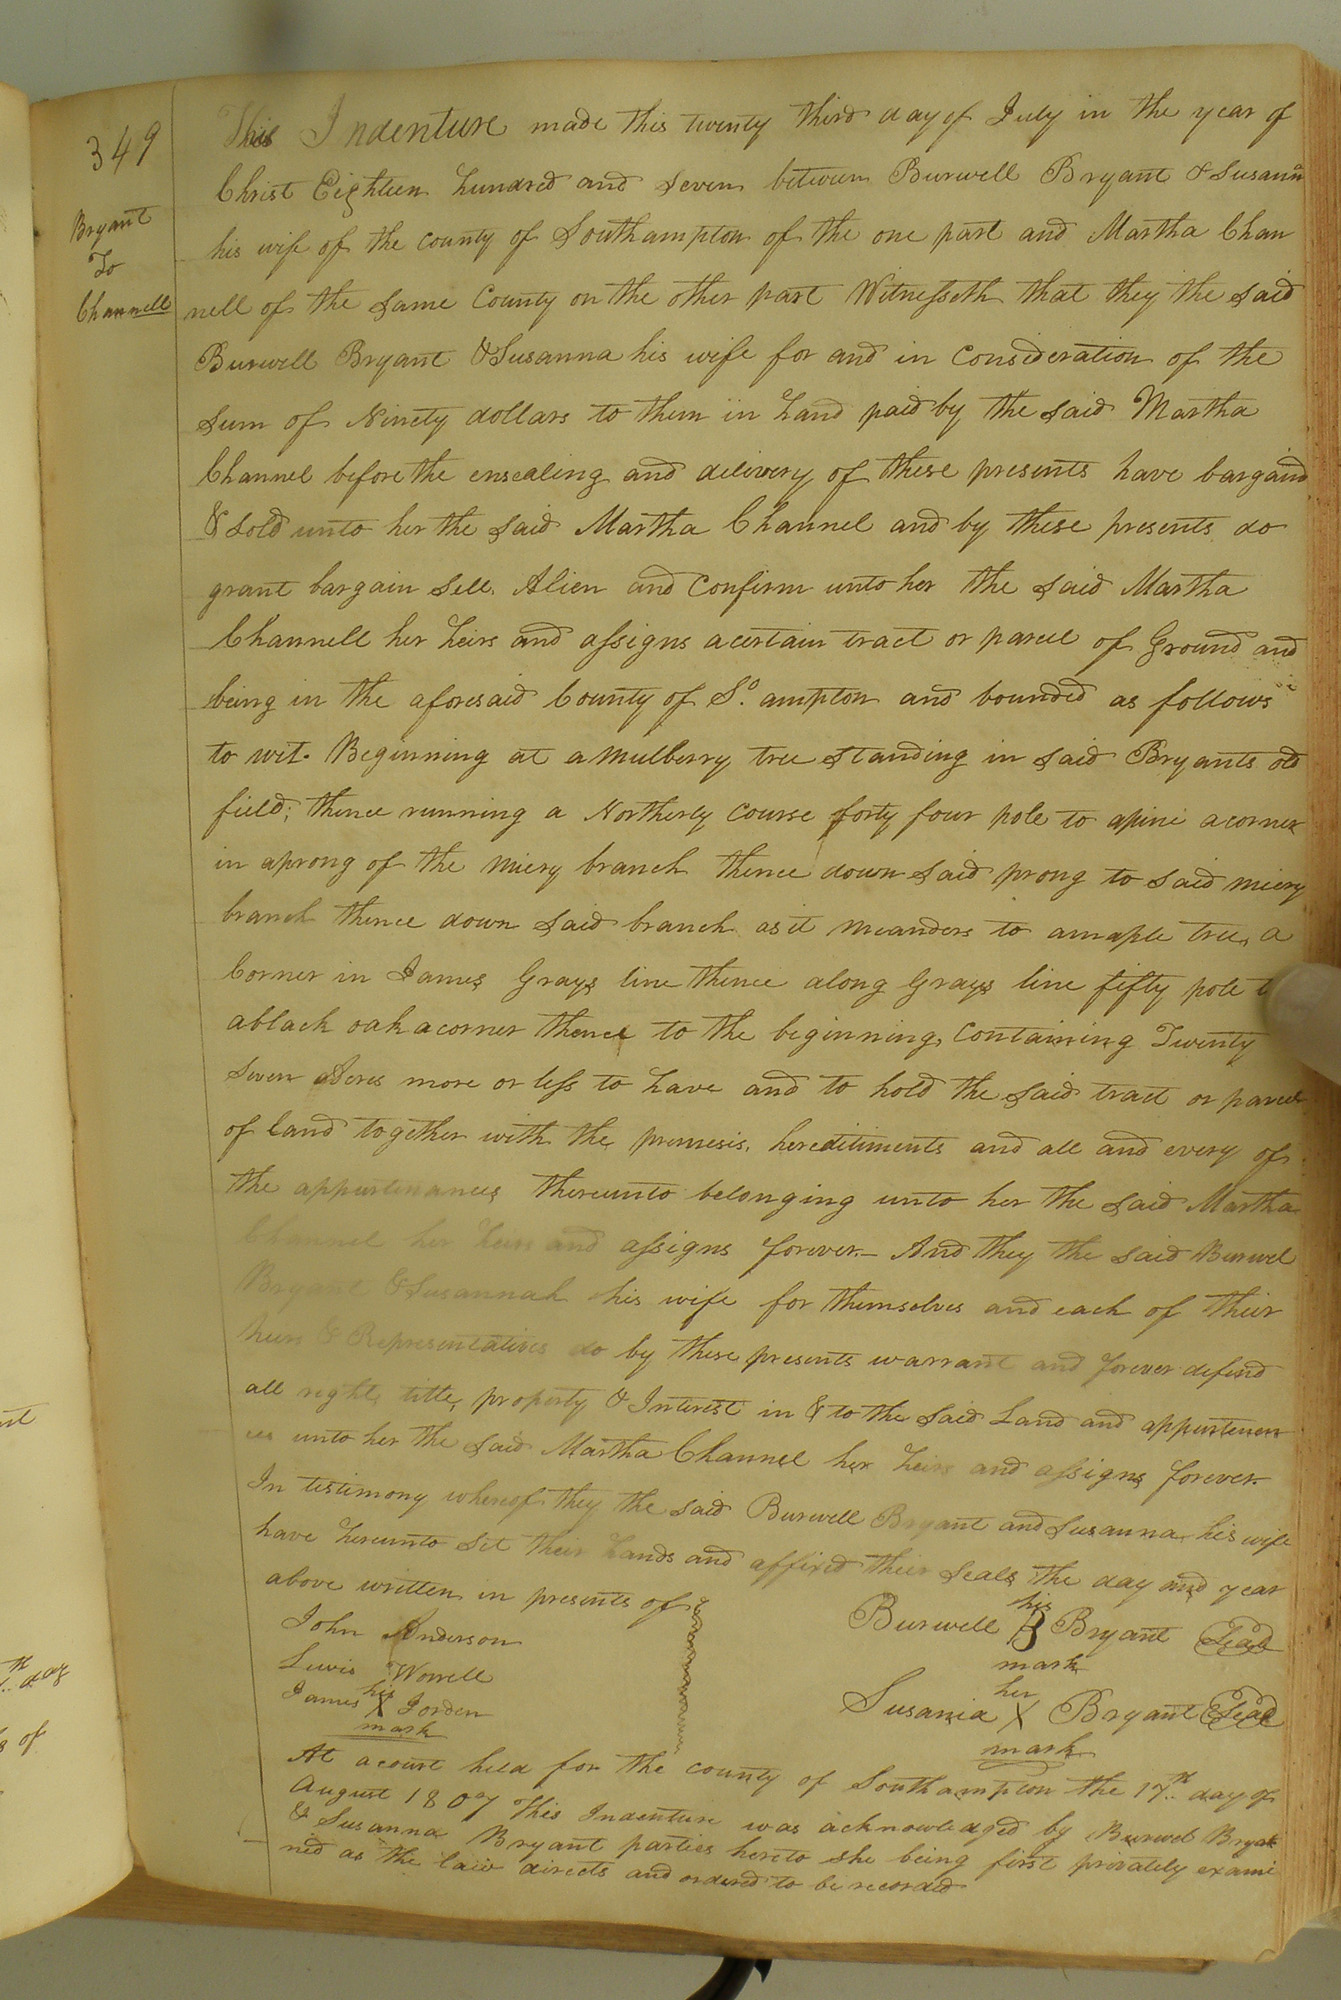 349
Bryant
To
Channell
This Indenture made this twenty third day of July in the year of
Christ Eighteen hundred and Seven between Burwell Bryant & Susanna
his wife of the county of Southampton of the one part and Martha Chan
nell of the same County on the other part Witnesseth that they the said
Burwell Bryant & Susanna his wife for and in Consideration of the
sum of Ninety dollars to them in hand paid by the said Martha
Channel before the ensealing and delivery of these presents have bargaind
& sold unto her the said Martha Channel and by these presents do
grant bargain sell Alien and Confirm unto her the said Martha
Channell her heirs and assigns a certain tract or parcel of Ground and
being in the aforesaid County of So. ampton and bounded as follows
to wit. Beginning at a mulberry tree standing in said Bryants old
field; thence running a Northerly Course forty four pole to a pine a corner
in a prong of the miery branch thence down said prong to said miery
branch thence down said branch as it meanders to a maple tree, a
Corner in James Grays line thence along Grays line fifty pole
a black oak a corner thence to the beginning, Containing Twenty
seven Acres more or less to have and to hold the said tract or parcel
of land together with the premesis, heredetiments and all and every of
the appurtenances thereunto belonging unto her the said Martha
Channel her heirs and assigns forever. And they the said Burwel
Bryant & Susannah his wife for themselves and each of their
heirs & Representatives do by these presents warrant and forever defend
all right, title, property & Interest in & to the said Land and appurtenan
ces unto her the said Martha Channel her heirs and assigns forever.
In testimony whereof they the said Burwell Bryant and Susanna his wife
have hereunto set their hands and affixed their seals the day and year
above written in presents of
John Anderson
Lewis Worrell
James his X Jorden
mark
Burwell his B Bryant Seal
mark
Susania her X Bryant Seal
mark
At a court held for the county of Southampton the 17th day of
August 1807 This Indenture was acknowledged by Burwel Bryant
& Susanna Bryant parties hereto she being first privately exami
ned as the law directs and ordered to be recorded